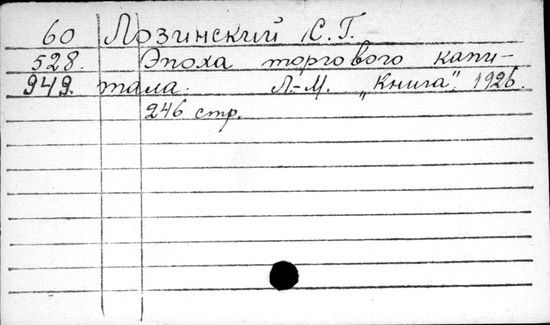 60 Лозинский С.Г.
528. Эпоха торгового капи-
949. тала. Л.-М. „Книга", 1926.
246 стр.